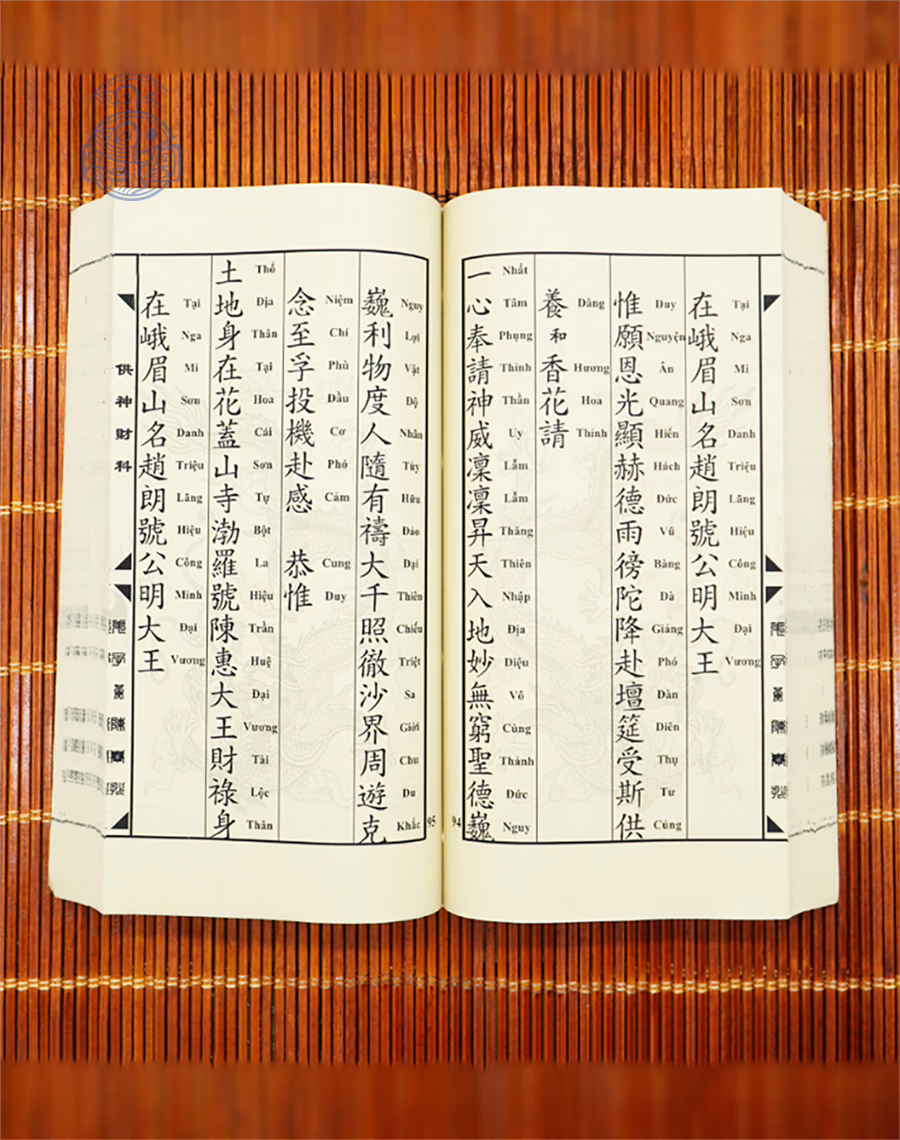 在峨眉山名趙朗號公明大王
Tại Nga Mi Sơn Danh Triệu Lãng Hiệu Công Minh Đại Vương
惟願恩光顯赫德雨徬陀降赴壇筵受斯供
Duy Nguyện Ân Quang Hiển Hách Đức Vũ Bàng Đà Giáng Phó Đàn Diên Thụ Tư Cúng
養和香花請
Dàng Hương Hoa Thỉnh
一心奉請神威凜凜昇天入地妙無窮聖德巍
Nhất Tâm Phụng Thỉnh Thần Uy Lẫm Lẫm Thăng Thiên Nhập Địa Diệu Vô Cùng Thánh Đức Nguy
94
巍利物度人隨有禱大千照徹沙界周遊克
Nguy Lợi Vật Độ Nhân Tùy Hữu Đảo Đại Thiên Chiếu Triệt Sa Giới Chu Du Khắc
念至孚投機赴感 恭惟
Niệm Chí Phù Đầu Cơ Phó Cảm Cung Duy
土地身在花蓋山寺渤羅號陳惠大王財祿身
Thổ Địa Thân Tại Hoa Cái Sơn Tự Bột La Hiệu Trần Huệ Đại Vương Tài Lộc Thân
在峨眉山名趙朗號公明大王
Tại Nga Mi Sơn Danh Triệu Lãng Hiệu Công Minh Đại Vương
供神財科
95